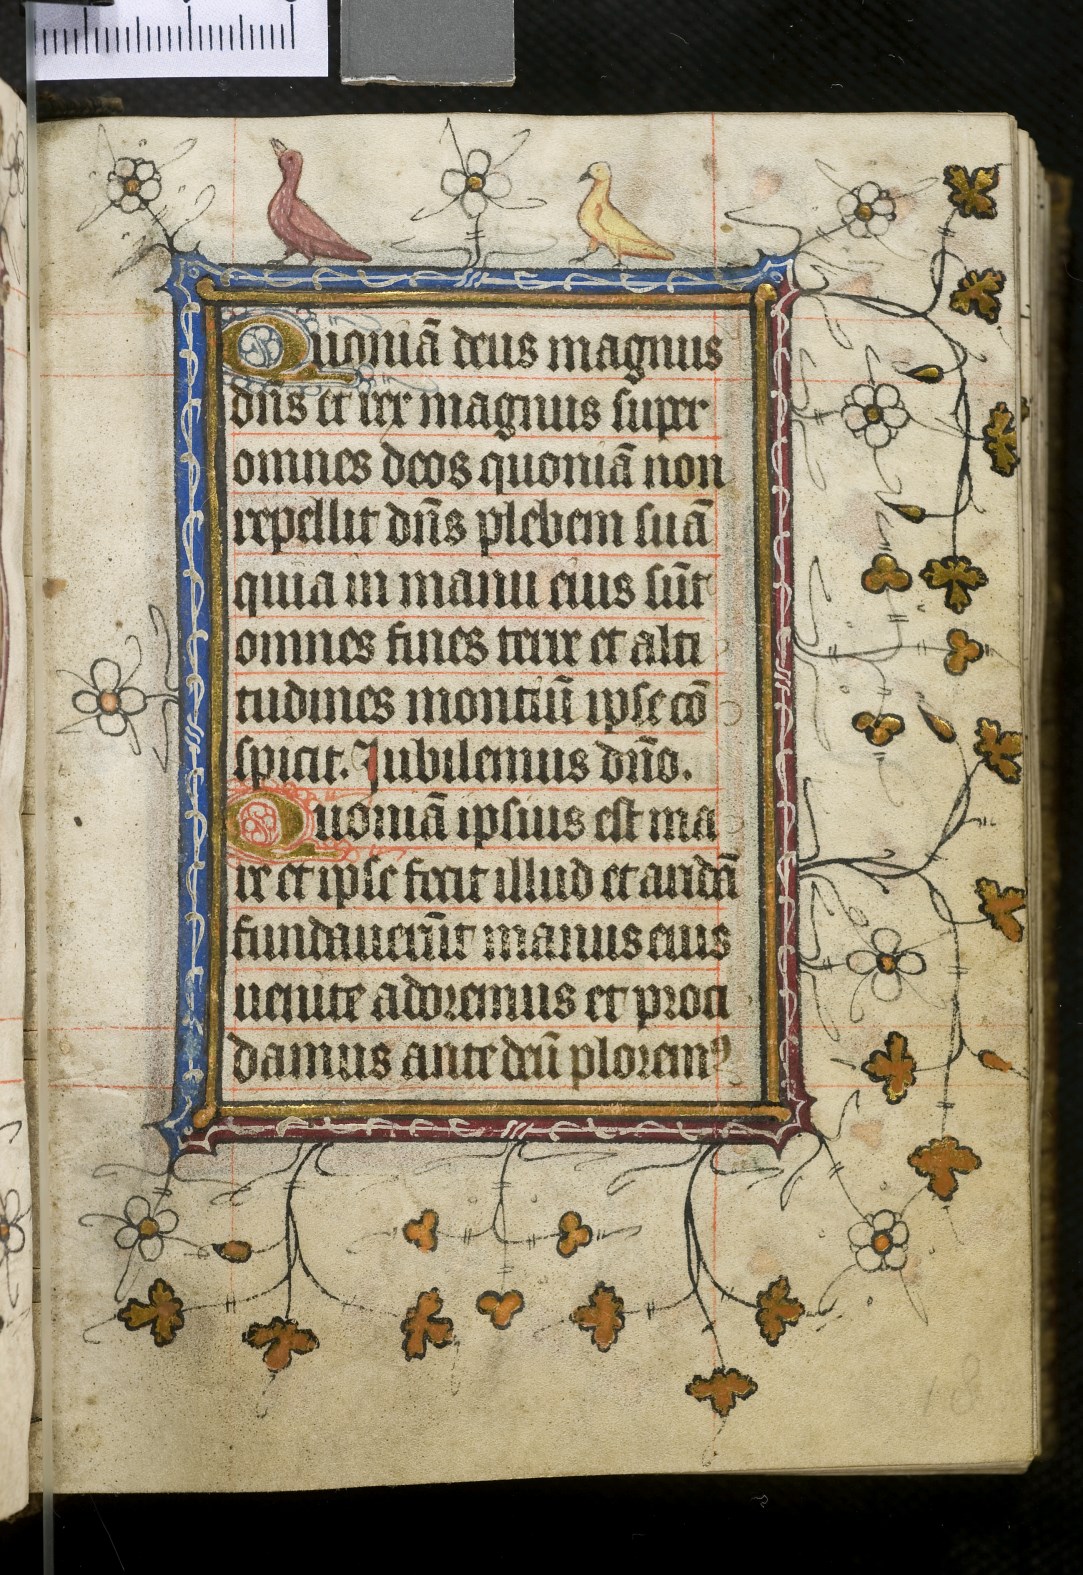 Quoniā deus magnus
dn̄s et rex magnus super
omnes deos quoniā non
repellit dn̄s plebem suā
quia in manu eius sūt
omnes fines terre et alti
tudines montiū ipse cō
spicit. Jubilemus dn̄o.
Quoniā ipsius est ma
re et ipse fecit illud et aridā
fundauerūt manus eius
uenite adoremus et proci
damus ante deū ploremꝰ
18